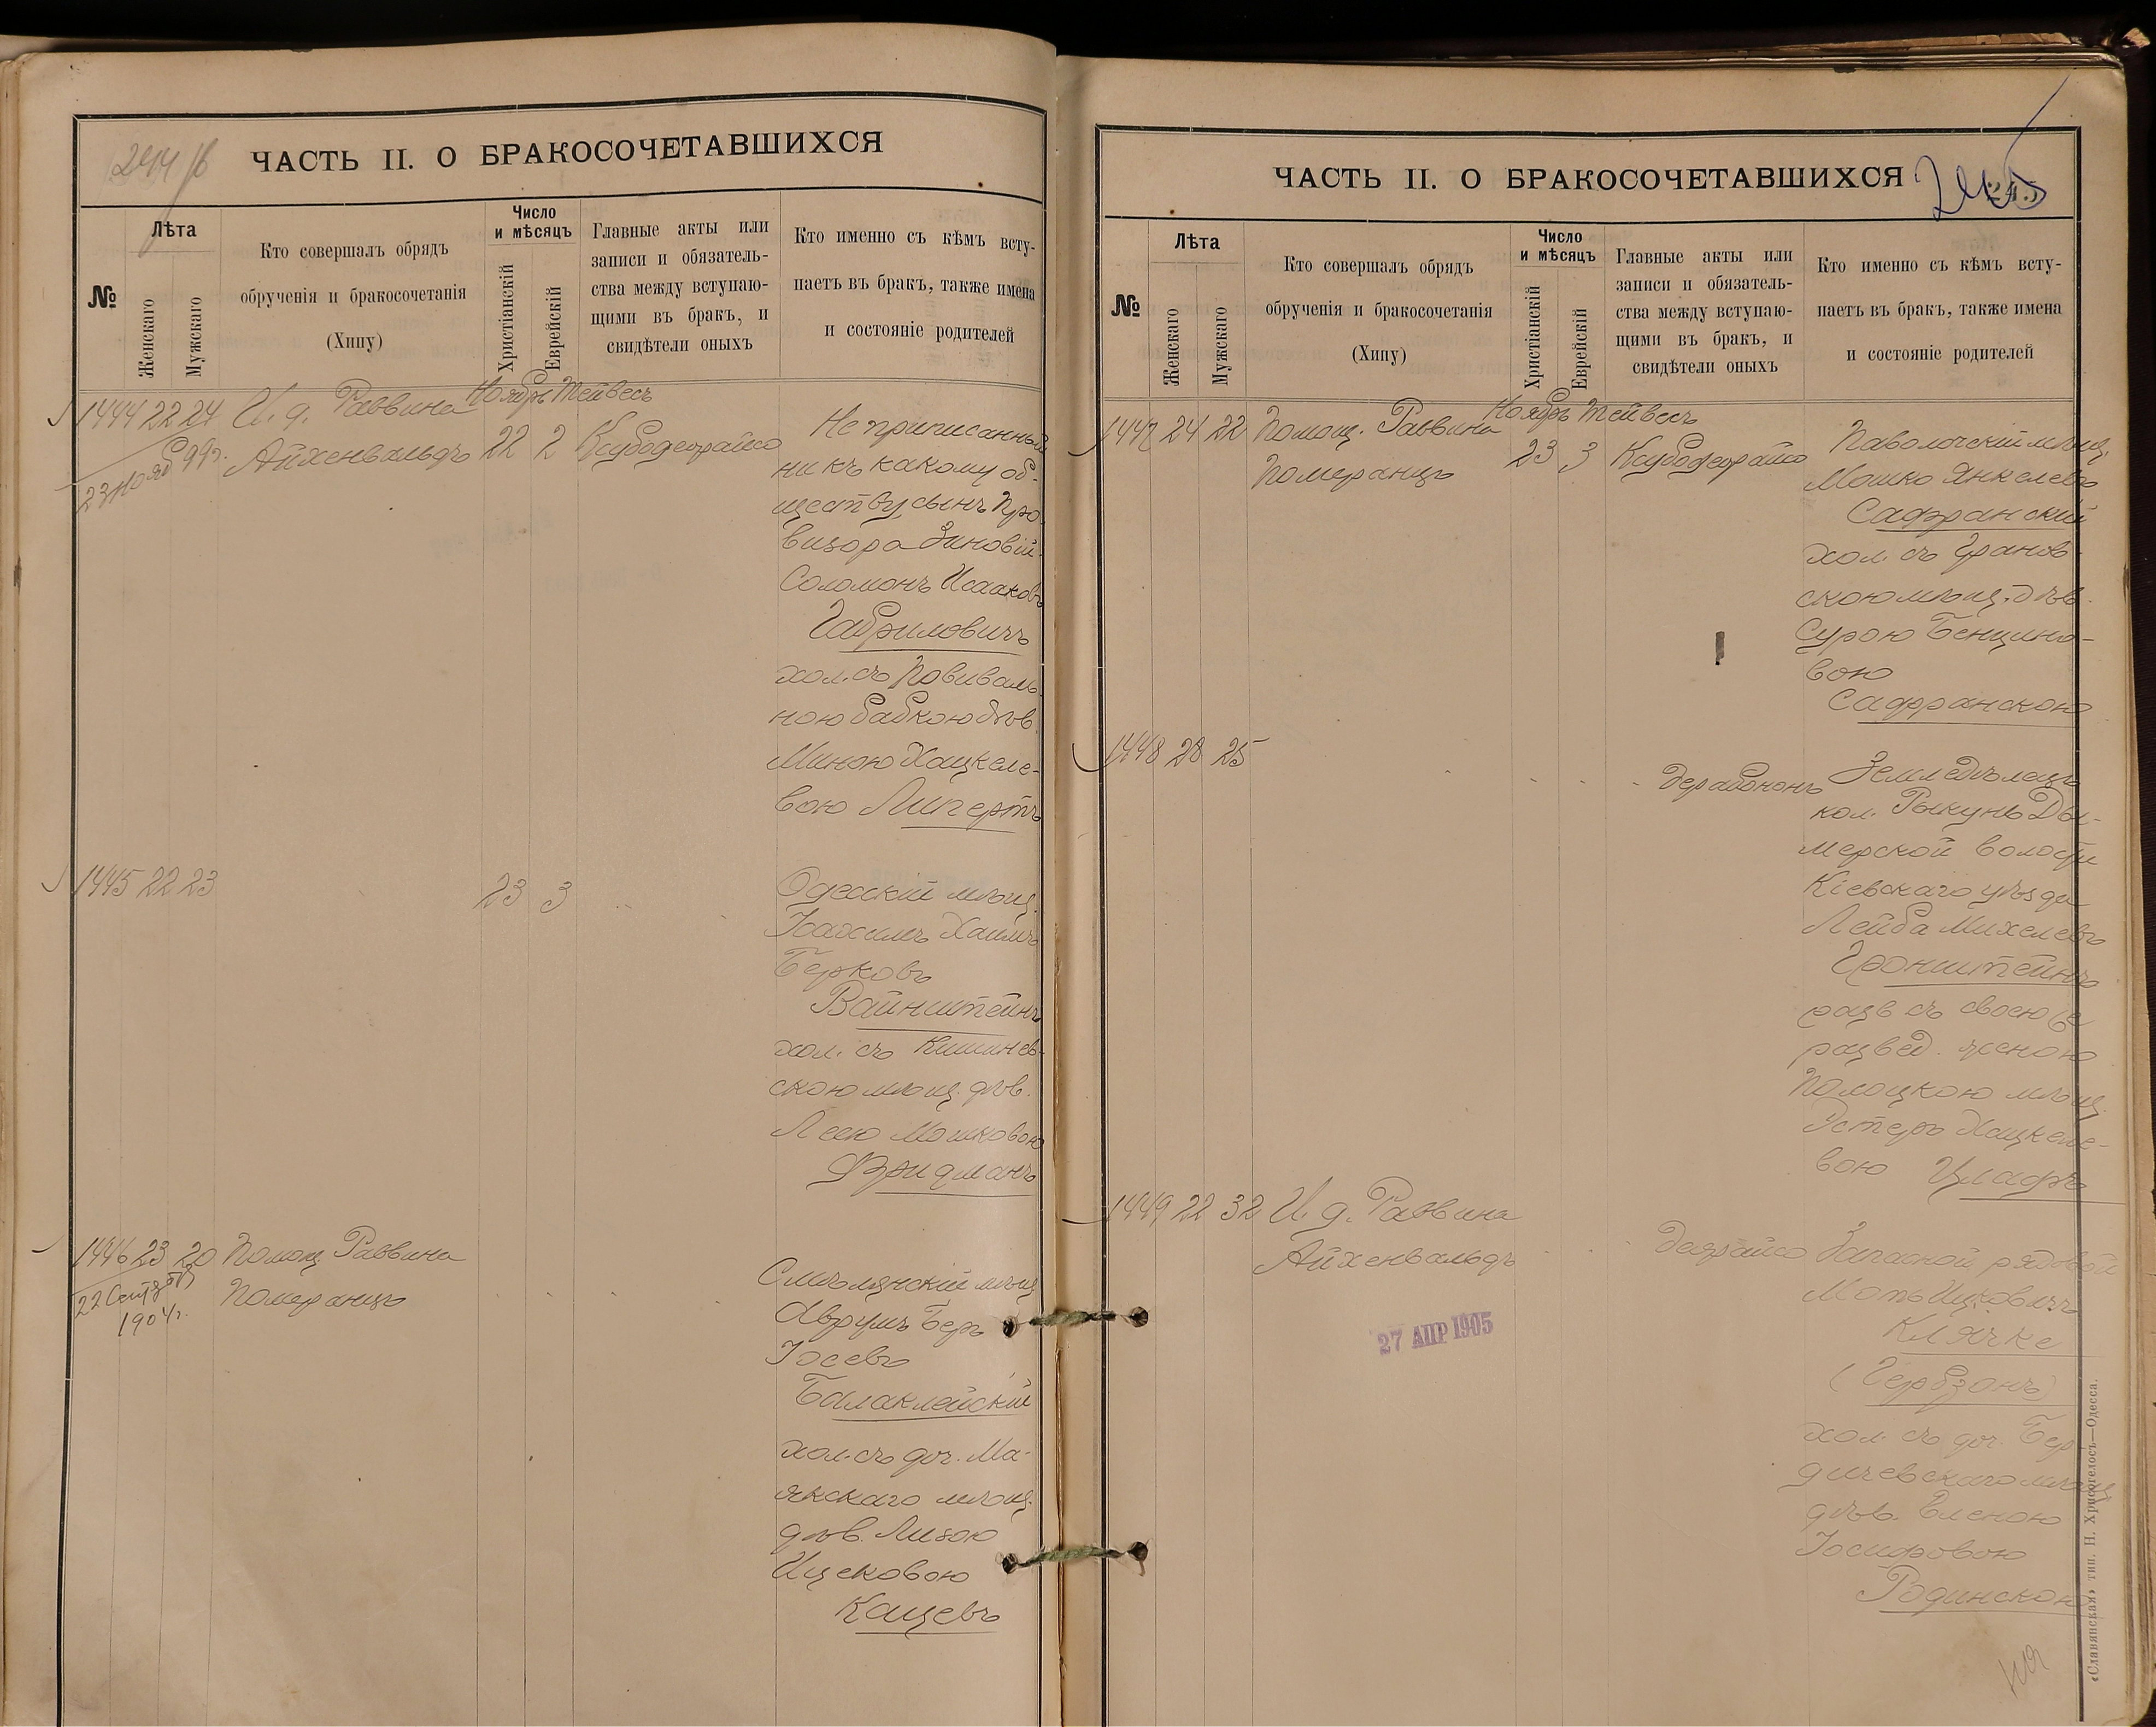 244 б
ЧАСТЬ II. О БРАКОСОЧЕТАВШИХСЯ
№
Лѣта
Женскаго
Мужскаго
Кто совершалъ обрядъ
обрученія и бракосочетанія
(Хипу)
Число
и мѣсяцъ
Христіанскій
Еврейскій
Главные акты или
записи и обязатель-
ства между вступаю-
щими въ бракъ, и
свидѣтели оныхъ
Кто именно съ кѣмъ всту-
паетъ въ бракъ, также имена
и состояніе родителей
Ноябрь Тейвесъ
1444 22 24 И. д. Раввина
Айхенвальдъ 22 2 Ксубодеорайсо
23 Нояб 99 г.
Не приписанный
ни къ какому об-
ществу сынъ Про-
визора Зиновій-
Соломонъ Исааковъ
Габриловичъ
хол. съ Повиваль-
ною бабкою дѣв.
Миною Хацкеле-
вою Липертъ
1445 22 23 23 3
Одесскій мѣщ.
Нахимъ Хаимъ
Берковъ
Вайнштейнъ
хол. съ Кишинев-
скою мѣщ. дѣв.
Леею Мошковою
Фридманъ
1446 23 20 Помощ. Раввина
Померанцъ
22 Сентяб
1904 г.
Смѣлянскій мѣщ
Аврумъ Беръ
Іосевъ
Балаклейскій
хол. съ доч. Ма-
якскаго мѣщ.
дѣв. Лизою
Ицековою
Кацевъ
ЧАСТЬ II. О БРАКОСОЧЕТАВШИХСЯ
245
№
Лѣта
Женскаго
Мужскаго
Кто совершалъ обрядъ
обрученія и бракосочетанія
(Хипу)
Число
и мѣсяцъ
Христіанскій
Еврейскій
Главные акты или
записи и обязатель-
ства между вступаю-
щими въ бракъ, и
свидѣтели оныхъ
Кто именно съ кѣмъ всту-
паетъ въ бракъ, также имена
и состояніе родителей
Ноябрь Тейвесъ
1447 24 22 Помощ. Раввина
Померанцъ 23 3 Ксубодеорайсо
Паволочскій мѣщ.
Мошко Янкелевъ
Сафранскій
хол. съ Гранов-
скою мѣщ. дѣв.
Сурою Бенціно-
вою
Сафранскою
1448 28 25
Дерабононъ
Земледѣлецъ
кол. Рыкунь Ды-
мерской волости
Кіевскаго уѣзда
Лейба Михелевъ
Гронштейнъ
разв съ своею
развед. женою
Полоцкою мѣщ.
Эстеръ Хацкеле-
вою Цлафъ
1449 22 32 И. д. Раввина
Айхенвальдъ
Деорайсо
Запасной рядовой
Мотъ Ицковичъ
Клячке
(Гербзонъ)
хол. съ доч. Бер-
дичевскаго мѣщ
дѣв. Еленою
Іосифовою
Родинскою
27 АПР 1905
«Славянская» тип. Н. Хрисогелосъ—Одесса.